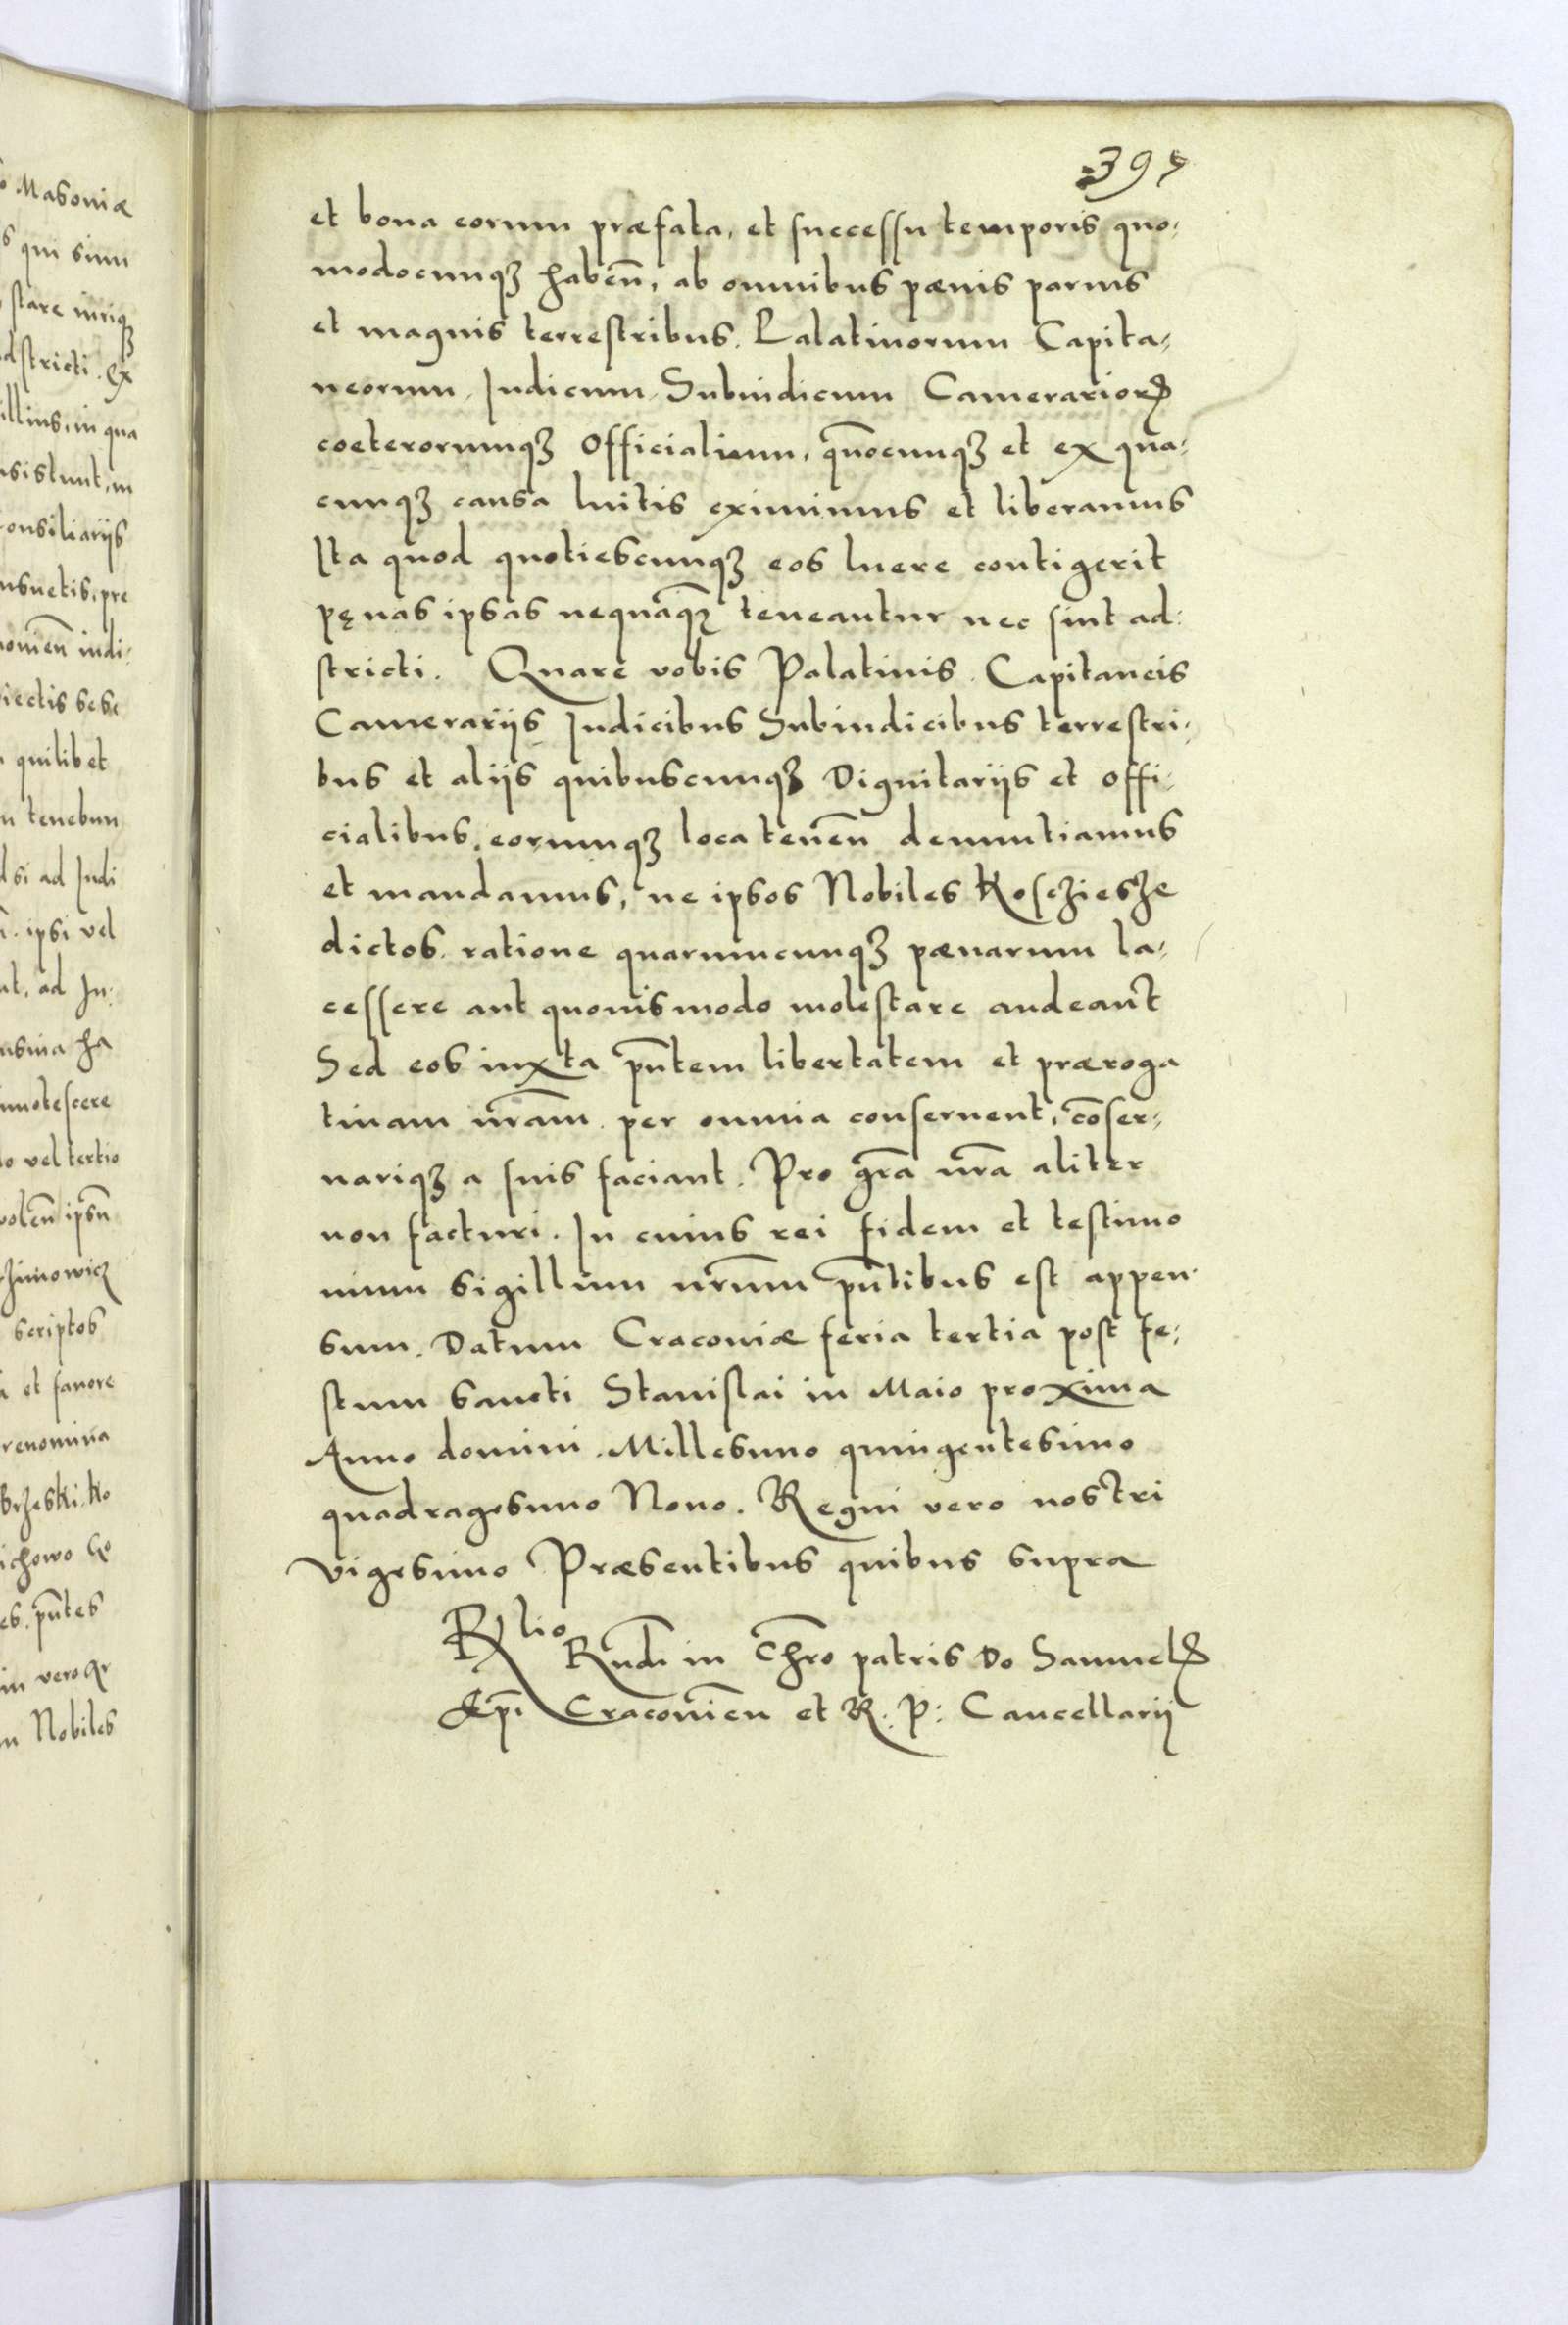 395
et bona eorum præfata, et successu temporis quo-
modocunqꝫ habeñ, ab omnibus pænis paruis
et magnis terrestribus. Palatinorum Capita-
neorum, Iudicum, Subiudicum Camerarioꝝ
coeterorumqꝫ Officialium, quõcunqꝫ et ex qua-
cunqꝫ causa luitis eximimus et liberamus
Ita quod quotiescunqꝫ eos luere contigerit
pęnas ipsas nequãqꝫ teneantur nec sint ad-
stricti. Quare vobis Palatinis. Capitaneis
Camerariis Iudicibus Subiudicibus terrestri-
bus et aliis quibuscunqꝫ Dignitariis et Offi-
cialibus, eorumqꝫ loca teneñ denuntiamus
et mandamus, ne ipsos Nobiles Koscziesze
dictos. ratione quarumcunqꝫ pænarum la-
cessere aut quouismodo molestare audeant
Sed eos iuxta pñtem libertatem et præroga
tiuam nrãm. per omnia conseruent, cõser-
uariqꝫ a suis faciant. Pro grã nrã aliter
non facturi. In cuius rei fidem et testimo
nium sigillum nrũm pñtibus est appen-
sum. Datum Cracoviæ feria tertia post fe-
stum Sancti Stanislai in Maio proxima
Anno domini. Millesimo quingentesimo
quadragesimo Nono. Regni vero nostri
vigesimo Præsentibus quibus supra
Rlio Rndi in Chro patris Do Samuelꝭ
Epi Cracovieñ et R. P: Cancellarii
Masoniæ
qui sunt
stare
stricti. Ex
illius, in qua
sistunt, in
onsiliariis
nsuetis, pre
indi-
iectis sese
quilibet
tenebun
si ad Iudi
ipsi vel
ad In-
ha
notescere
vel tertio
ipsũ
scriptos
et fauore
renomina
Brzeski. Ko
ichowo
pñtes
vero
Nobiles